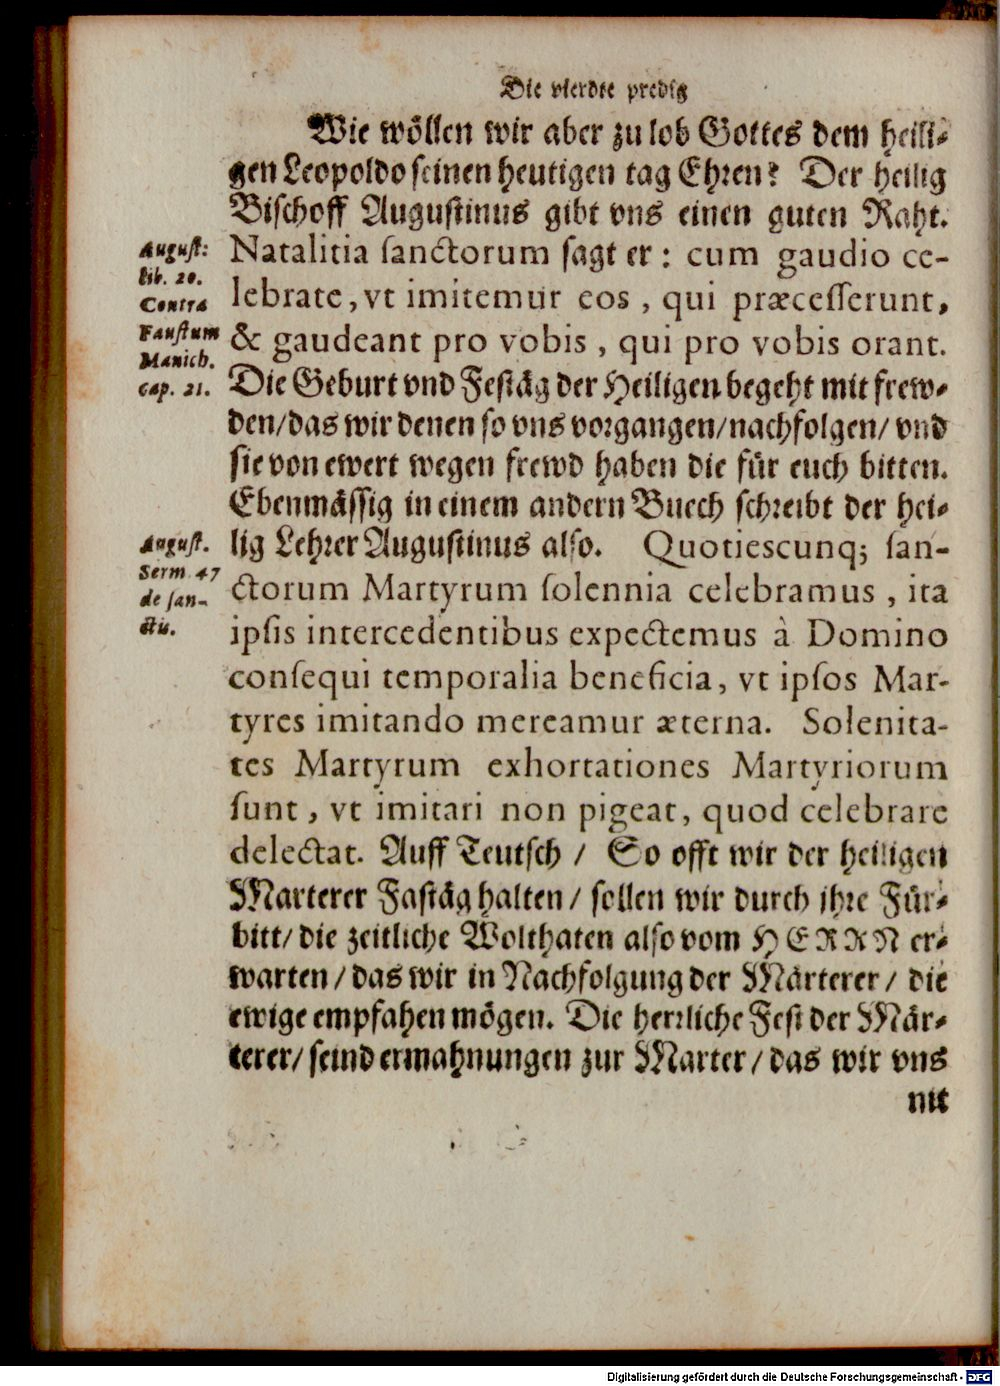 Die vierdte predig
Wie wöllen wir aber zu lob Gottes dem heili-
gen Leopoldo seinen heutigen tag Ehren? Der heilig
Bischoff Augustinus gibt vns einen guten Raht.
Natalitia sanctorum sagt er: cum gaudio ce-
lebrate, vt imitemur eos, qui præcesserunt,
& gaudeant pro vobis, qui pro vobis orant.
Die Geburt vnd Festäg der Heiligen begeht mit frew-
den/das wir denen so vns vorgangen/nachfolgen/ vnd
sie von ewert wegen frewd haben die für euch bitten.
Ebenmässig in einem andern Buech schreibt der hei-
lig Lehrer Augustinus also. Quotiescunq; san-
ctorum Martyrum solennia celebramus, ita
ipsis intercedentibus expectemus à Domino
consequi temporalia beneficia, vt ipsos Mar-
tyres imitando mereamur æterna. Solenita-
tes Martyrum exhortationes Martyriorum
sunt, vt imitari non pigeat, quod celebrare
delectat. Auff Teutsch / So offt wir der heiligen
Marterer Fastäg halten/ sollen wir durch ihre Für-
bitt/die zeitliche Wolthaten also vom HERRN er-
warten/das wir in Nachfolgung der Märterer/ die
ewige empfahen mögen. Die herrliche Fest der Mär-
terer/seind ermahnungen zur Marter/das wir vns
nit
August:
lib. 20.
Contra
Faustum
Manich.
cap. 21.
August.
Serm 47
de san-
ctis.
Digitalisierung gefördert durch die Deutsche Forschungsgemeinschaft - DFG